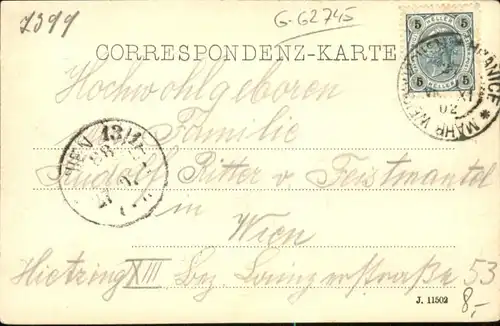 1399
G-62745
CORRESPONDENZ-KARTE
5 HELLER 5
5 5
MÄHR. WEISSKIRCHEN
HRANICE
XI
02
Hochwohlgeboren
Familie
WIEN 13/1
Rudolf Ritter v Feistmantel
in
Wien
Hietzing XIII Bez Lainzerstraße 53
8,-
J. 11502